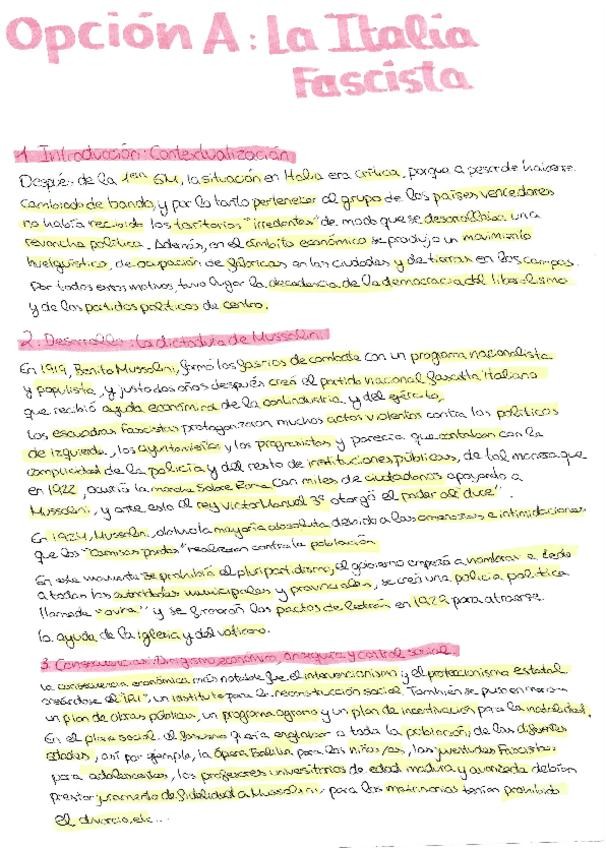 Opción A: La Italia
Fascista
1. Introducción: Contextualización
Después de la 1era GM, la situación en Italia era crítica, porque a pesar de haberse
cambiado de bando, y por lo tanto pertenecer al grupo de los países vencedores
no había recibido los territorios "irredentos" de modo que se desarrollaba una
revancha política. Además, en el ámbito económico se produjo un movimiento
huelguístico, de ocupación de fábricas en las ciudades y de tierras en los campos.
Por todos estos motivos, tuvo lugar la decadencia de la democracia del liberalismo
y de los partidos políticos de centro.
2. Desarrollo: La dictadura de Mussolini.
En 1919, Benito Mussolini, formó los fascios de combate con un programa nacionalista
y populista, y justo dos años después creó el partido nacional fascista Italiano
que recibió ayuda económica de la confindustria y del ejército,
los escuadras fascistas protagonizaron muchos actos violentos contra los políticos
de izquierda, los ayuntamientos y los progresistas y parecía que contaban con la
complicidad de la policía y del resto de instituciones públicas, de tal manera que
en 1922, ocurrió la marcha sobre Roma con miles de ciudadanos apoyando a
Mussolini, y ante esto el rey Victor Manuel 3º otorgó el poder al "duce".
En 1924, Mussolini, obtuvo la mayoría absoluta debido a las amenazas e intimidaciones
que los "camisas pardas" realizaron contra la población
En este momento se prohibió el pluripartidismo, el gobierno empezó a nombrar a dedo
a todas las autoridades municipales y provinciales, se creó una policía política
llamada "ovra" y se firmaron los pactos de Letrán en 1929 para atraerse
la ayuda de la iglesia y del vaticano.
3. Consecuencias: Dirigismo económico, autarquía y control social.
La consecuencia económica más notable fue el intervencionismo y el proteccionismo estatal
creándose el "IRI", un instituto para la reconstrucción social. También se puso en marcha
un plan de obras públicas, un programa agrario y un plan de incentivación para la natalidad.
En el plano social el gobierno quería englobar a toda la población, de las diferentes
edades, así por ejemplo, la Ópera Balilla para los niños/as, las juventudes Fascistas,
para adolescentes, los profesores universitarios de edad madura y avanzada debían
prestar juramento de fidelidad a Mussolini, para los matrimonios tenían prohibido
el divorcio, etc...